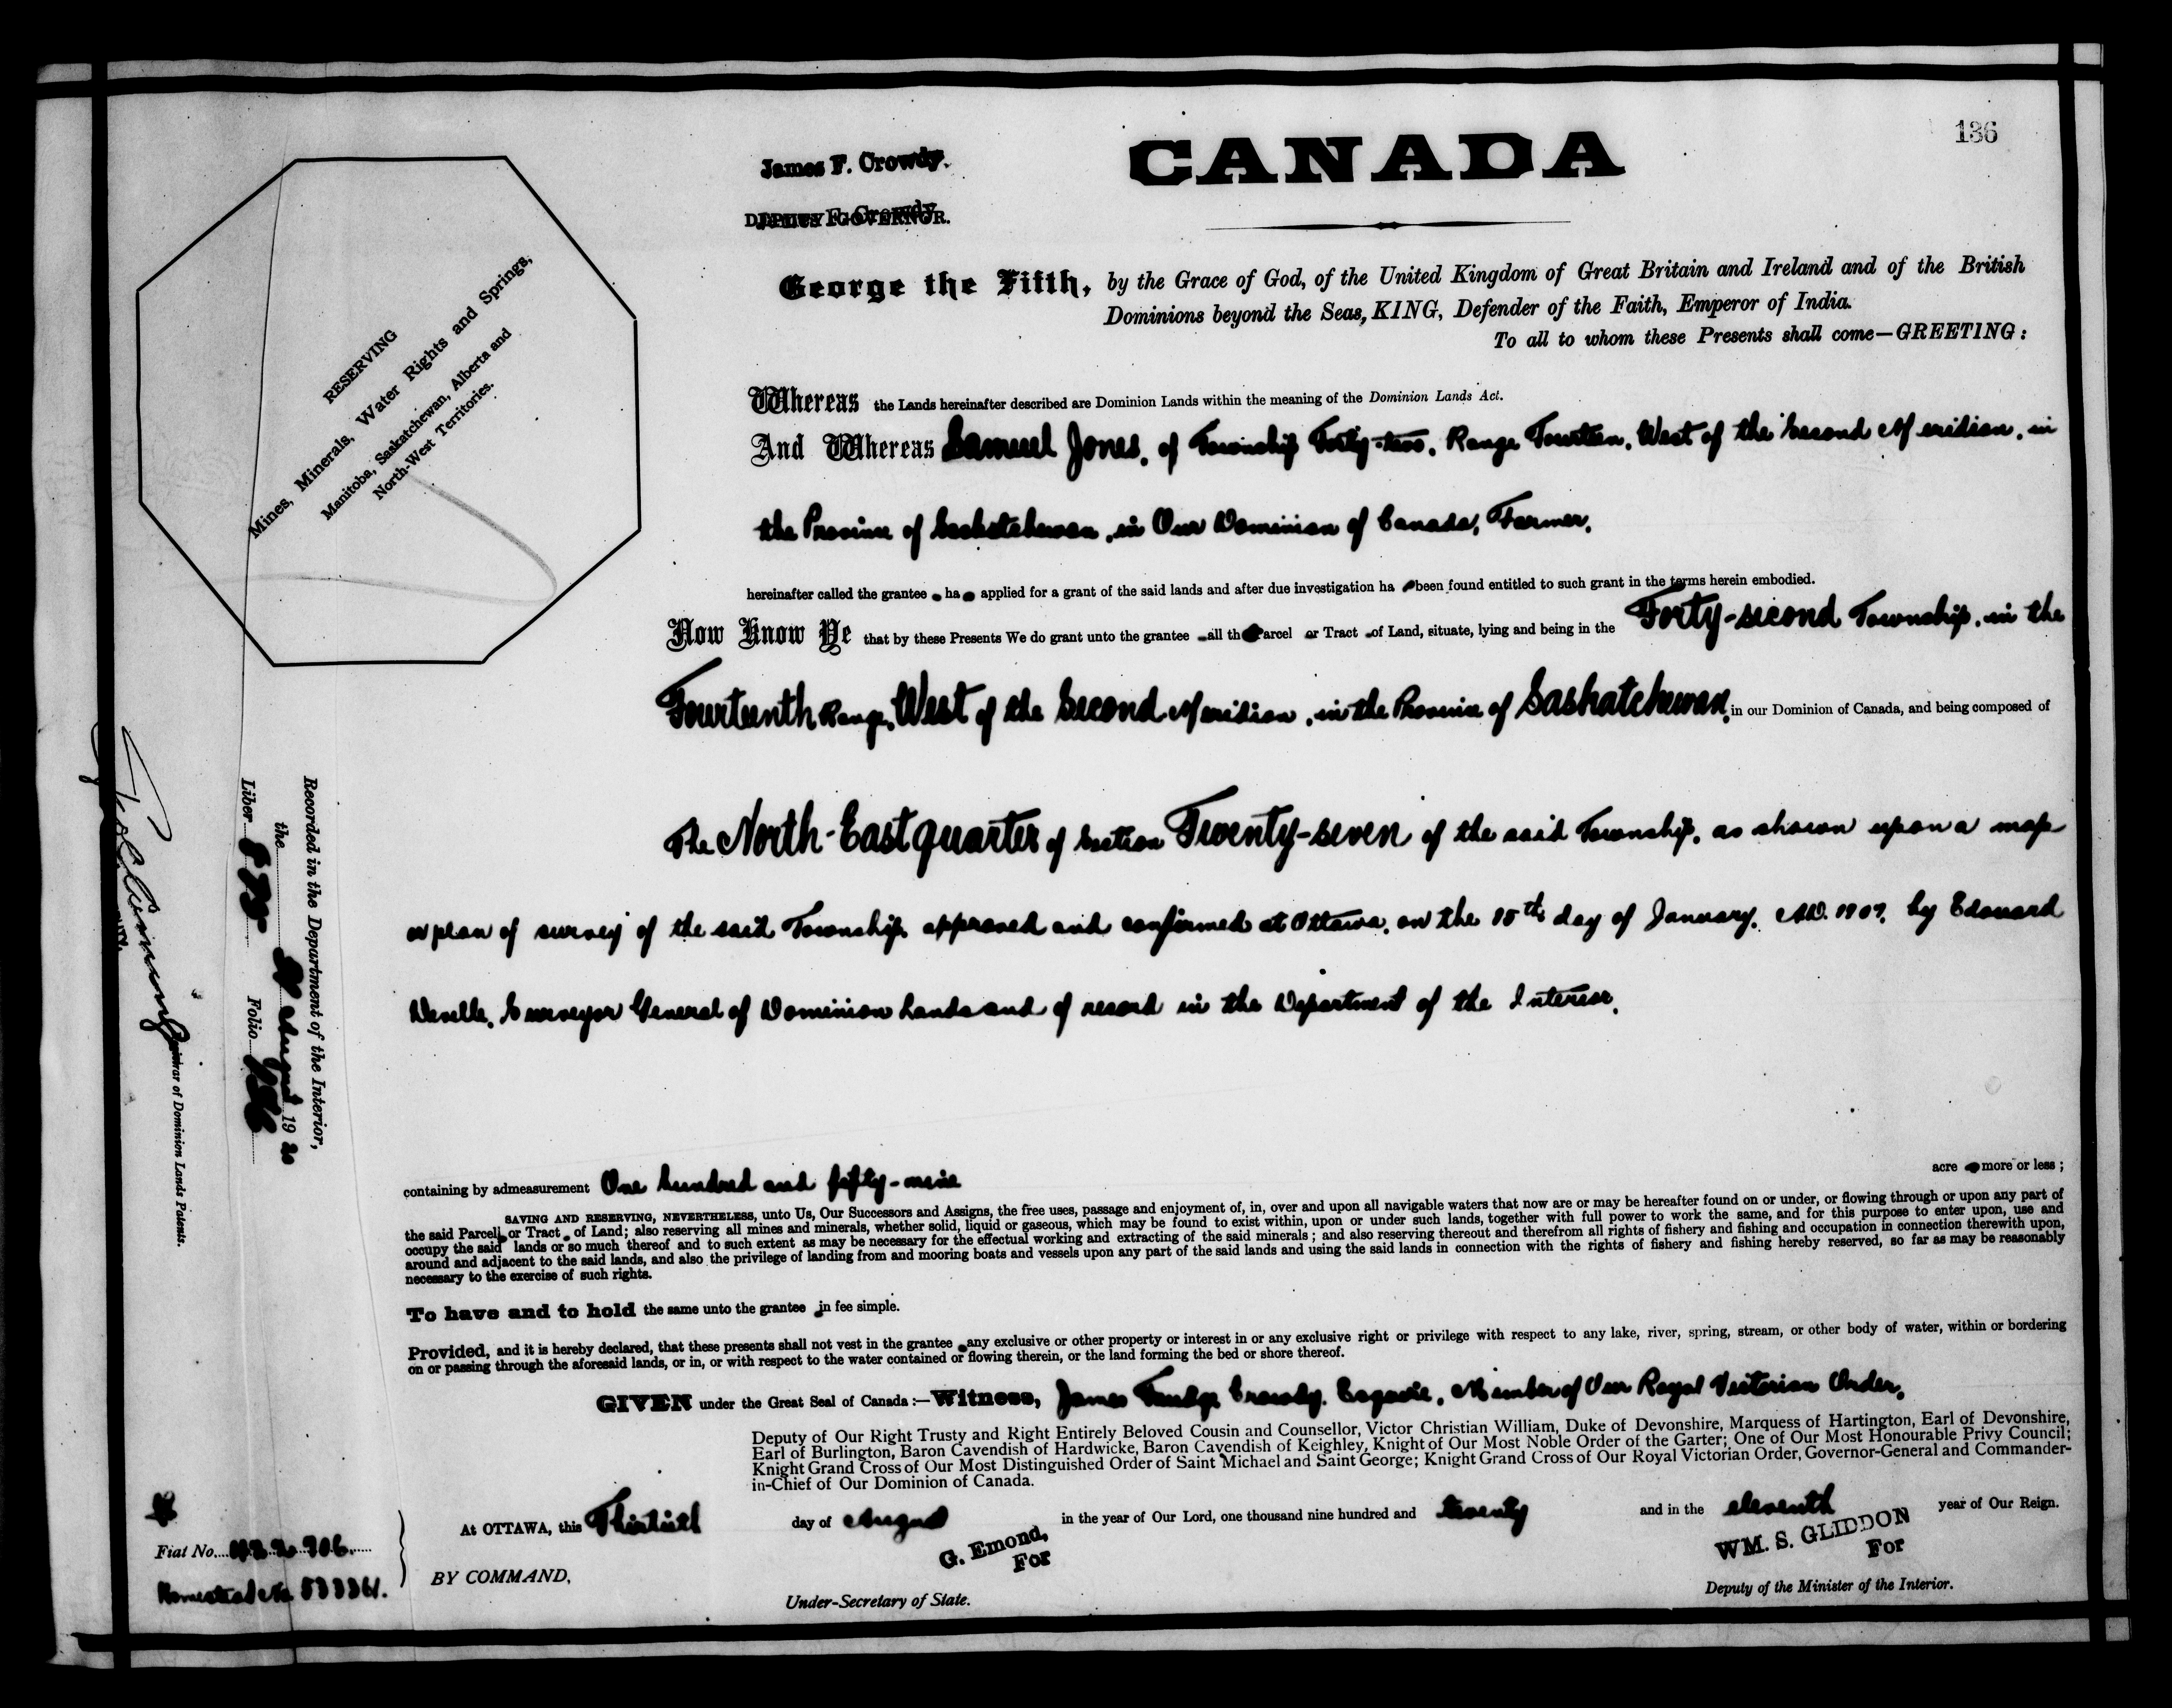 136
CANADA
James F. Crowdy.
DEPUTY GOVERNOR.
George the Fifth, by the Grace of God, of the United Kingdom of Great Britain and Ireland and of the British
Dominions beyond the Seas, KING, Defender of the Faith, Emperor of India.
To all to whom these Presents shall come—GREETING:
RESERVING
Mines, Minerals, Water Rights and Springs,
Manitoba, Saskatchewan, Alberta and
North-West Territories.
Whereas the Lands hereinafter described are Dominion Lands within the meaning of the Dominion Lands Act.
And Whereas Samuel Jones, of Township Forty-two, Range Fourteen, West of the Second Meridian, in
the Province of Saskatchewan, in Our Dominion of Canada, Farmer,
hereinafter called the grantee ha applied for a grant of the said lands and after due investigation ha been found entitled to such grant in the terms herein embodied.
Now Know Ye that by these Presents We do grant unto the grantee all th Parcel or Tract of Land, situate, lying and being in the Forty-second Township, in the
Fourteenth Range, West of the Second Meridian, in the Province of Saskatchewan, in our Dominion of Canada, and being composed of
The North-East quarter of Section Twenty-seven of the said Township, as shown upon a map
or plan of survey of the said Township, approved and confirmed at Ottawa, on the day of January, A.D. by Edouard
Deville, Surveyor General of Dominion Lands and of record in the Department of the Interior.
containing by admeasurement One hundred and fifty-nine acre more or less;
SAVING AND RESERVING, NEVERTHELESS, unto Us, Our Successors and Assigns, the free uses, passage and enjoyment of, in, over and upon all navigable waters that now are or may be hereafter found on or under, or flowing through or upon any part of
the said Parcel or Tract of Land; also reserving all mines and minerals, whether solid, liquid or gaseous, which may be found to exist within, upon or under such lands, together with full power to work the same, and for this purpose to enter upon, use and
occupy the said lands or so much thereof and to such extent as may be necessary for the effectual working and extracting of the said minerals; and also reserving thereout and therefrom all rights of fishery and fishing and occupation in connection therewith upon,
around and adjacent to the said lands, and also the privilege of landing from and mooring boats and vessels upon any part of the said lands and using the said lands in connection with the rights of fishery and fishing hereby reserved, so far as may be reasonably
necessary to the exercise of such rights.
To have and to hold the same unto the grantee in fee simple.
Provided, and it is hereby declared, that these presents shall not vest in the grantee any exclusive or other property or interest in or any exclusive right or privilege with respect to any lake, river, spring, stream, or other body of water, within or bordering
on or passing through the aforesaid lands, or in, or with respect to the water contained or flowing therein, or the land forming the bed or shore thereof.
GIVEN under the Great Seal of Canada:—Witness, James Crowdy, Esquire, Member of Our Royal Victorian Order,
Deputy of Our Right Trusty and Right Entirely Beloved Cousin and Counsellor, Victor Christian William, Duke of Devonshire, Marquess of Hartington, Earl of Devonshire,
Earl of Burlington, Baron Cavendish of Hardwicke, Baron Cavendish of Keighley, Knight of Our Most Noble Order of the Garter; One of Our Most Honourable Privy Council;
Knight Grand Cross of Our Most Distinguished Order of Saint Michael and Saint George; Knight Grand Cross of Our Royal Victorian Order, Governor-General and Commander-
in-Chief of Our Dominion of Canada.
At OTTAWA, this Thirtieth day of August in the year of Our Lord, one thousand nine hundred and twenty and in the eleventh year of Our Reign.
BY COMMAND,
G. Emond,
For
Under-Secretary of State.
WM. S. GLIDDON
For
Deputy of the Minister of the Interior.
Fiat No.
Homestead No.
Recorded in the Department of the Interior,
the August 19
Liber Folio 136
Registrar of Dominion Lands Patents.